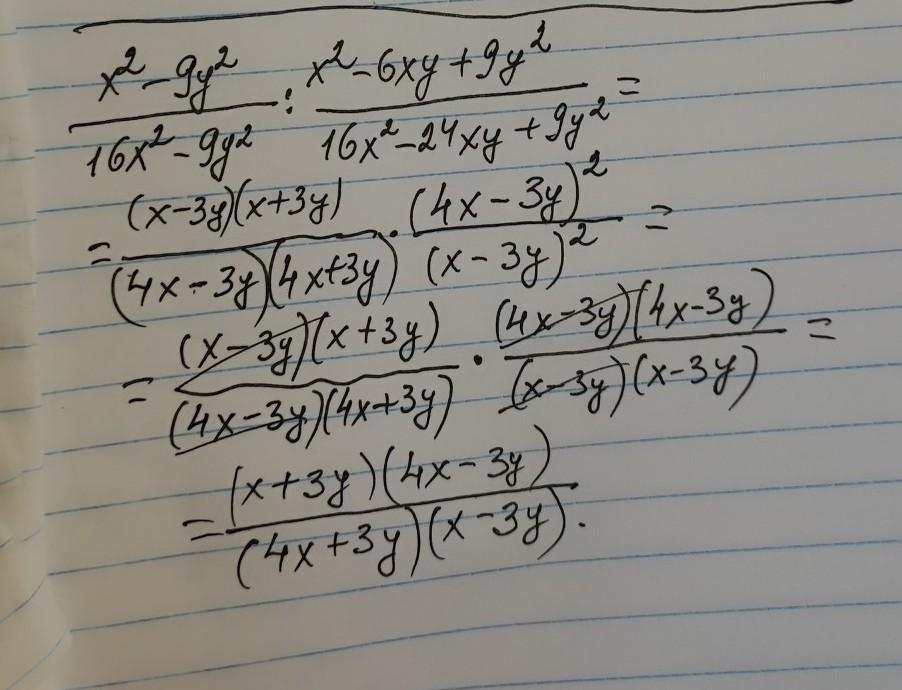 (x² - 9y²)/(16x² - 9y²) : (x² - 6xy + 9y²)/(16x² - 24xy + 9y²) =
= ((x - 3y)(x + 3y))/((4x - 3y)(4x + 3y)) · (4x - 3y)²/(x - 3y)² =
= ((x - 3y)(x + 3y))/((4x - 3y)(4x + 3y)) · ((4x - 3y)(4x - 3y))/((x - 3y)(x - 3y)) =
= ((x + 3y)(4x - 3y))/((4x + 3y)(x - 3y)).